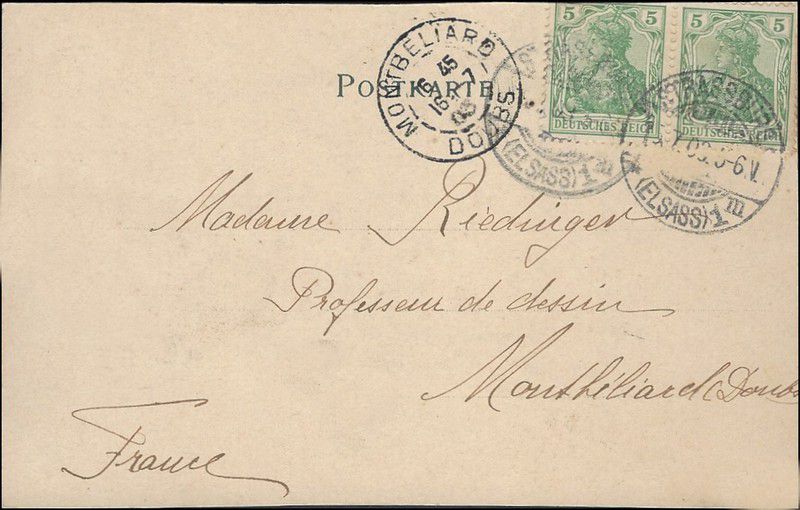 POSTKARTE
MONTBELIARD
6 45
16 7
03
DOUBS
5 5
DEUTSCHES REICH
5 5
DEUTSCHES REICH
(ELSASS) 1 m
STRASSBURG
5-6 V.
(ELSASS) 1 m
Madame Riedinger
Professeur de dessin
Montbéliard (Doubs
France